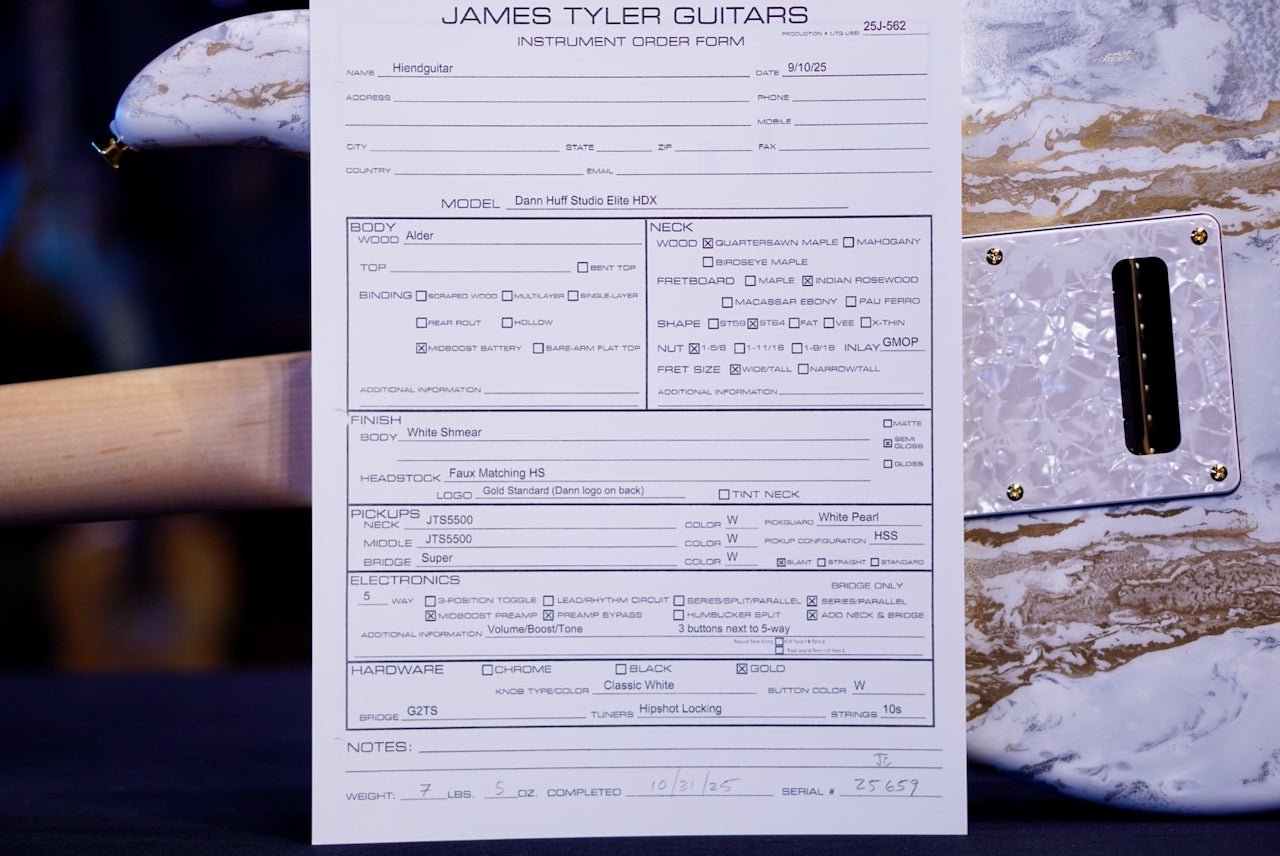 JAMES TYLER GUITARS
INSTRUMENT ORDER FORM
PRODUCTION # (JTG USE) 25J-562
NAME Hiendguitar DATE 9/10/25
ADDRESS PHONE
MOBILE
CITY STATE ZIP FAX
COUNTRY EMAIL
MODEL Dann Huff Studio Elite HDX
BODY
WOOD Alder
TOP BENT TOP
BINDING SCRAPED WOOD MULTILAYER SINGLE-LAYER
REAR ROUT HOLLOW
☒ MIDBOOST BATTERY BARE-ARM FLAT TOP
ADDITIONAL INFORMATION
NECK
WOOD ☒ QUARTERSAWN MAPLE MAHOGANY
BIRDSEYE MAPLE
FRETBOARD MAPLE ☒ INDIAN ROSEWOOD
MACASSAR EBONY PAU FERRO
SHAPE ST59 ☒ ST64 FAT VEE X-THIN
NUT ☒ 1-5/8 1-11/16 1-9/16 INLAY GMOP
FRET SIZE ☒ WIDE/TALL NARROW/TALL
ADDITIONAL INFORMATION
FINISH
BODY White Shmear
MATTE
☒ SEMI GLOSS
GLOSS
HEADSTOCK Faux Matching HS
LOGO Gold Standard (Dann logo on back) TINT NECK
PICKUPS
NECK JTS5500 COLOR W PICKGUARD White Pearl
MIDDLE JTS5500 COLOR W PICKUP CONFIGURATION HSS
BRIDGE Super COLOR W ☒ SLANT STRAIGHT STANDARD
ELECTRONICS BRIDGE ONLY
5 WAY 3-POSITION TOGGLE LEAD/RHYTHM CIRCUIT SERIES/SPLIT/PARALLEL ☒ SERIES/PARALLEL
☒ MIDBOOST PREAMP ☒ PREAMP BYPASS HUMBUCKER SPLIT ☒ ADD NECK & BRIDGE
ADDITIONAL INFORMATION Volume/Boost/Tone 3 buttons next to 5-way
HARDWARE CHROME BLACK ☒ GOLD
KNOB TYPE/COLOR Classic White BUTTON COLOR W
BRIDGE G2TS TUNERS Hipshot Locking STRINGS 10s
NOTES:
JC
WEIGHT: 7 LBS. 5 OZ. COMPLETED 10/31/25 SERIAL # 25659